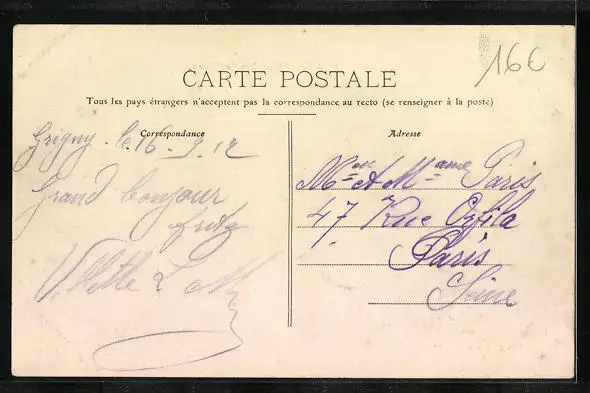 16€
CARTE POSTALE
Tous les pays étrangers n'acceptent pas la correspondance au recto (se renseigner à la poste)
Correspondance
Grigny. le 16-9-12
Grand bonjour
Adresse
Mon et Mame Paris
47 Rue Orfila
Paris
Seine